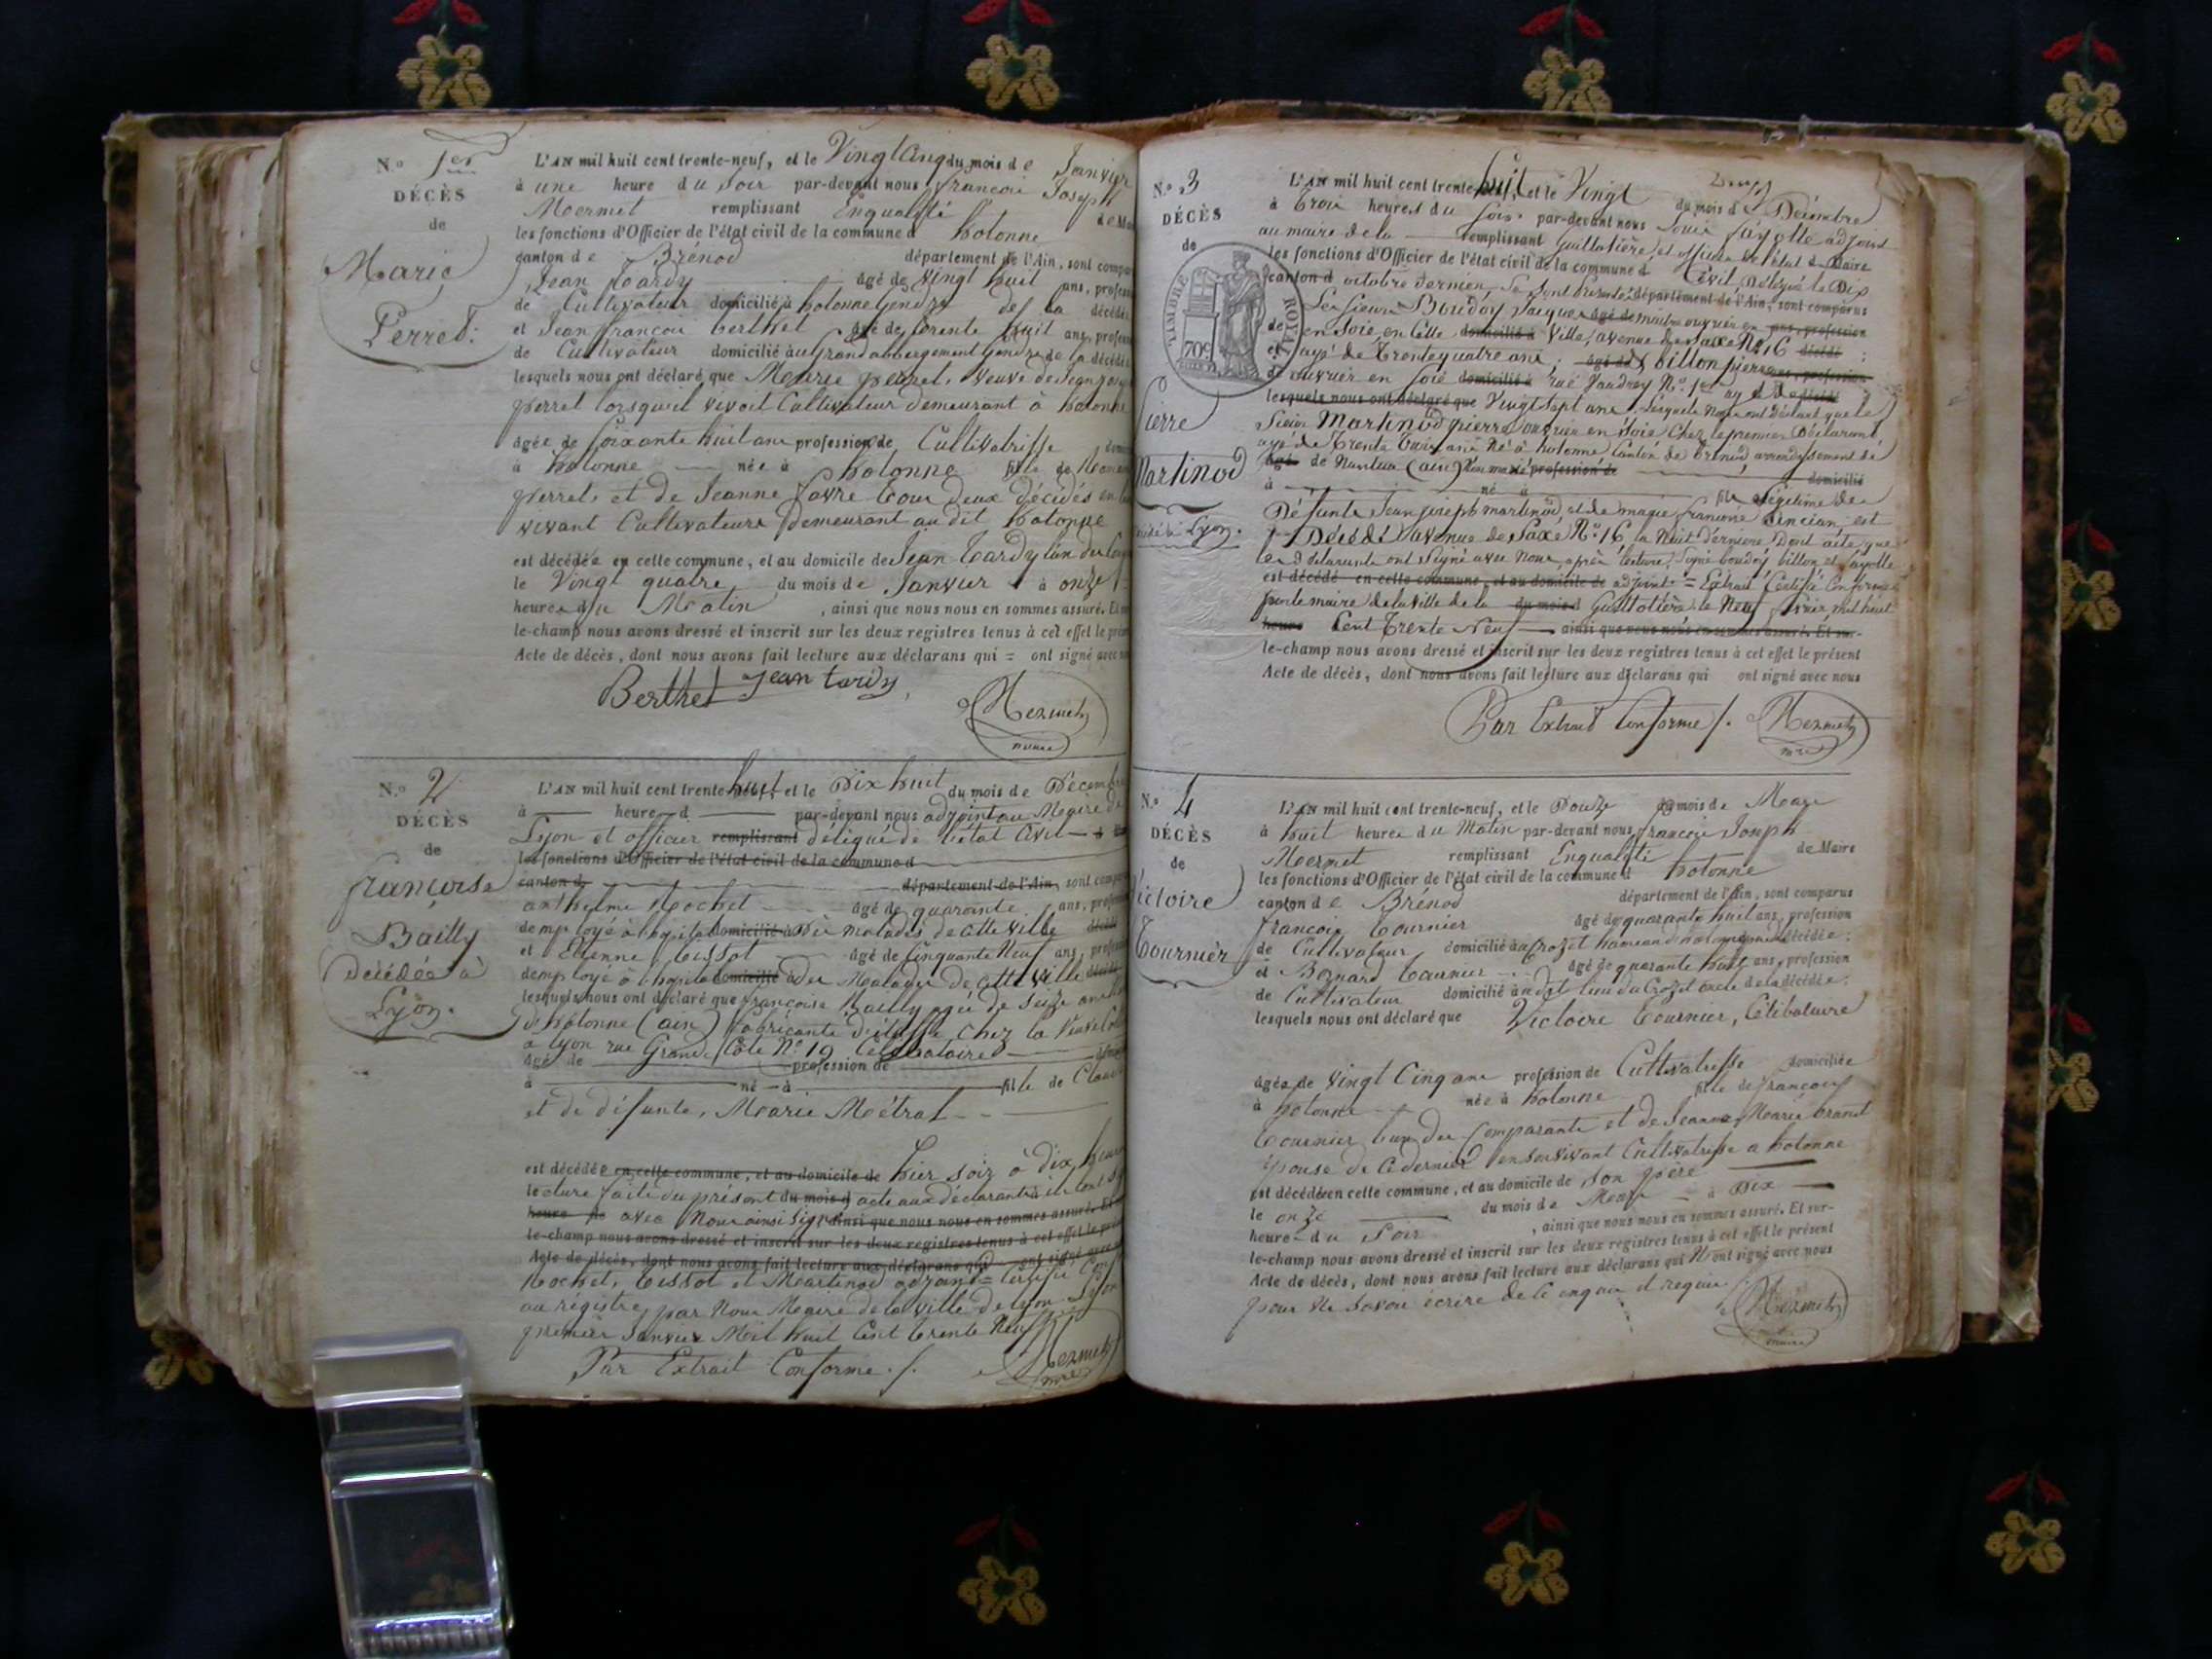 N.o 1er
DÉCÈS
de
Marie
Perret.
L'AN mil huit cent trente-neuf, et le Vingt Cinq du mois de Janvier
à une heure du Soir par-devant nous françois Joseph
Mermet remplissant Enqualité de Mai
les fonctions d'Officier de l'état civil de la commune d hotonne
canton de Brénod département de l'Ain, sont compar
Jean tardy âgé de Vingt huit ans, profess
de Cultivateur domicilié à hotonne Gendre de la décédé
et Jean françois berthet âgé de trente huit ans, profess
de Cultivateur domicilié au Grand abbergement Gendre de la décédé
lesquels nous ont déclaré que Marie perret, Veuve de Jean
perret lorsqu'il vivoit Cultivateur demeurant à hotonne
âgée de Soixante huit ans profession de Cultivatrisse
à hotonne née à hotonne fille de
perret, et de Jeanne favre tous deux décédés en
vivant Cultivateurs demeurant au dit hotonne
est décédée en cette commune, et au domicile de Jean tardy l'un des
le Vingt quatre du mois de Janvier à onze
heures du Matin, ainsi que nous nous en sommes assuré. Et
le-champ nous avons dressé et inscrit sur les deux registres tenus à cet effet le pré
Acte de décès, dont nous avons fait lecture aux déclarans qui = ont signé avec
Berthet Jean tardy
Mermet
maire
N.o 2
DÉCÈS
de
françoise
Bailly
Décédée à
Lyon.
L'AN mil huit cent trente-huit, et le Dix huit du mois de Décembre
à heure d par-devant nous adjoint au Maire de
Lyon et officier remplissant délégué de l'état Civil
les fonctions d'Officier de l'état civil de la commune d
canton d département de l'Ain, sont compar
anthelme Rochet âgé de quarante ans, profess
d'employé à l'hopital domicilié à Des malades de cette Ville décédé
et Etienne tissot âgé de Cinquante Neuf ans, profess
d'employé à l'hopital domicilié à des Malades de cette ville décédé
lesquels nous ont déclaré que françoise Bailly agée de Seize ans
d'hotonne (ain) fabricante d'étoffe chez la Veuve
à Lyon rue Grande Côte No 19 Célibataire
âgé de profession de
à né à fille de
et de défunte, Marie Métral
est décédée en cette commune, et au domicile de hier soir à dix heures
lecture faite du présent du mois d acte aux déclarants ils ont
heure du avec Nous ainsi Signé ainsi que nous nous en sommes assuré. Et
le-champ nous avons dressé et inscrit sur les deux registres tenus à cet effet le pré
Acte de décès, dont nous avons fait lecture aux déclarans qui ont signé avec
Rochet, tissot et Martinod adjoint = Certifié
au régistre, par Nous Maire de la ville de Lyon
premier Janvier Mil huit Cent trente Neuf
Par Extrait Conforme ./. Mermet
mre
N.o 3
DÉCÈS
de
Pierre
Martinod
Lyon.
TIMBRE ROYAL
70c
L'AN mil huit cent trente-huit, et le Vingt du mois de Décembre
à trois heures du Soir par-devant nous Louis fayolle adjoint
au maire de la remplissant Guillotière, et officier de l'état de Maire
les fonctions d'Officier de l'état civil de la commune d Civil, Délégué le Dix
canton d octobre dernier, Se Sont Présentés département de l'Ain, sont comparus
Les Sieurs Boudoy Jacques âgé de maitre ouvrier en ans, profession
de en Soie, en Cette domicilié à Ville, avenue de Saxe No 16 décédé ;
et agé de trente quatre ans ; âgé de billon pierre ans, profession
de ouvrier en Soie domicilié à rue Vaudrey No 1er décédé
lesquels nous ont déclaré que Vingt Sept ans, lesquels Nous ont Déclaré que le
Sieur Martinod pierre, ouvrier en Soie Chez le premier Déclarant,
agé de trente trois ans Né à hotonne Canton de brénod arrondissement de
âgé de Nantua (ain) Non marié profession de
à né à domicilié fils légitime de
Défunts Jean joseph martinod et de marie françoise Sincian, est
Décédé avenue de Saxe No 16 la Nuit Dernière Dont acte que
les déclarants ont Signé avec Nous, après lecture, Signé boudoy billon et fayolle
est décédé en cette commune, et au domicile de adjoint = Extrait Certifié Conforme
par le maire de la ville de la du mois d Guillotière le Neuf mil huit
heure Cent trente Neuf ainsi que nous nous en sommes assuré. Et sur-
le-champ nous avons dressé et inscrit sur les deux registres tenus à cet effet le présent
Acte de décès, dont nous avons fait lecture aux déclarans qui ont signé avec nous
Par Extrait Conforme /. Mermet
mre
N.o 4
DÉCÈS
de
Victoire
tournier
L'AN mil huit cent trente-neuf, et le Douze du mois de Mars
à huit heures du Matin par-devant nous françois Joseph
Mermet remplissant Enqualité de Maire
les fonctions d'Officier de l'état civil de la commune d hotonne
canton de Brénod département de l'Ain, sont comparus
françois tournier âgé de quarante huit ans, profession
de Cultivateur domicilié au Crozet hameau d'hotonne père de la décédée :
et Bernard tournier âgé de quarante huit ans, profession
de Cultivateur domicilié au dit lieu du Crozet oncle de la décédée :
lesquels nous ont déclaré que Victoire tournier, Célibataire
âgée de Vingt Cinq ans profession de Cultivatrisse domiciliée
à hotonne née à hotonne fille de françois
tournier l'un des Comparants et de Jeanne Marie brunet
épouse de Ce dernier en Son vivant Cultivatrisse à hotonne
est décédée en cette commune, et au domicile de Son père
le onze du mois de Mars à Dix
heure du Soir, ainsi que nous nous en sommes assuré. Et sur-
le-champ nous avons dressé et inscrit sur les deux registres tenus à cet effet le présent
Acte de décès, dont nous avons fait lecture aux déclarans qui N'ont signé avec nous
pour Ne Savoir écrire de Ce enquis et requis
Mermet
maire